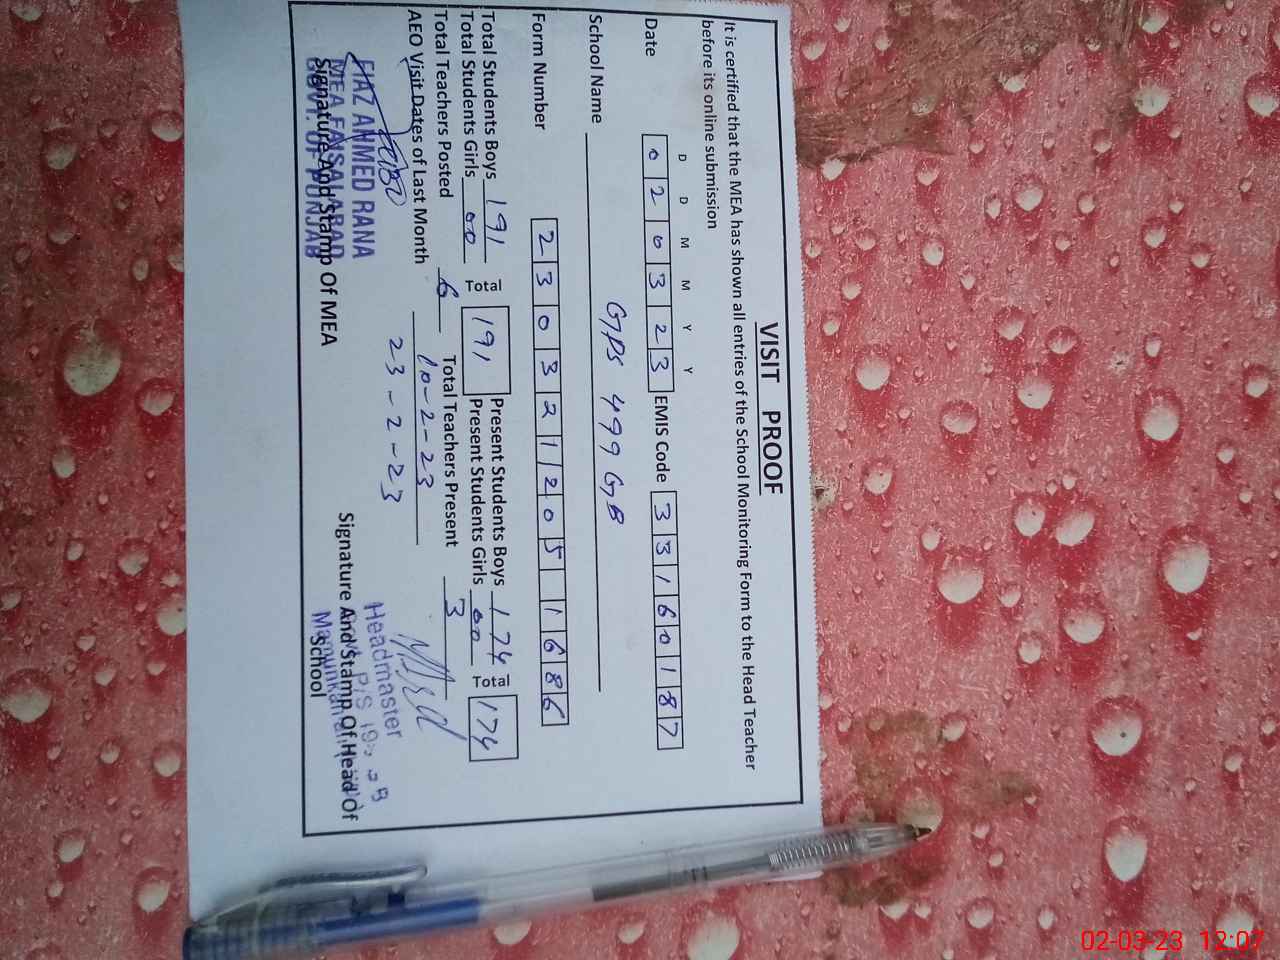 VISIT PROOF
It is certified that the MEA has shown all entries of the School Monitoring Form to the Head Teacher
before its online submission
D D M M Y Y
Date 0 2 0 3 2 3 EMIS Code 3 3 1 6 0 1 8 7
School Name GPS 499 GB
Form Number 2 3 0 3 2 1 1 2 0 5 1 1 6 8 6
Total Students Boys 191 Total 191 Present Students Boys 174 Total 174
Total Students Girls 00 Present Students Girls 00
Total Teachers Posted 6 Total Teachers Present 3
AEO Visit Dates of Last Month 10-2-23
23-2-23
FIAZ AHMED RANA
MEA FAISALABAD
GOVT. OF PUNJAB
Signature And Stamp Of MEA
Headmaster
Signature And Stamp Of Head Of
School
02-03-23 12:07